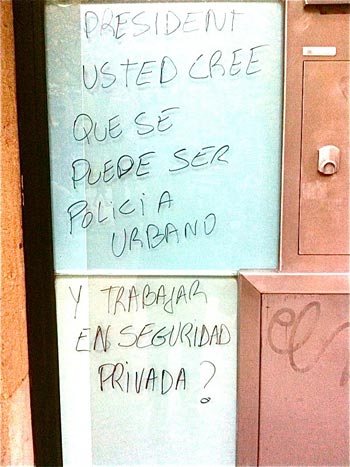 PRESIDENT
USTED CREE
QUE SE
PUEDE SER
POLICIA
URBANO
Y TRABAJAR
EN SEGURIDAD
PRIVADA?